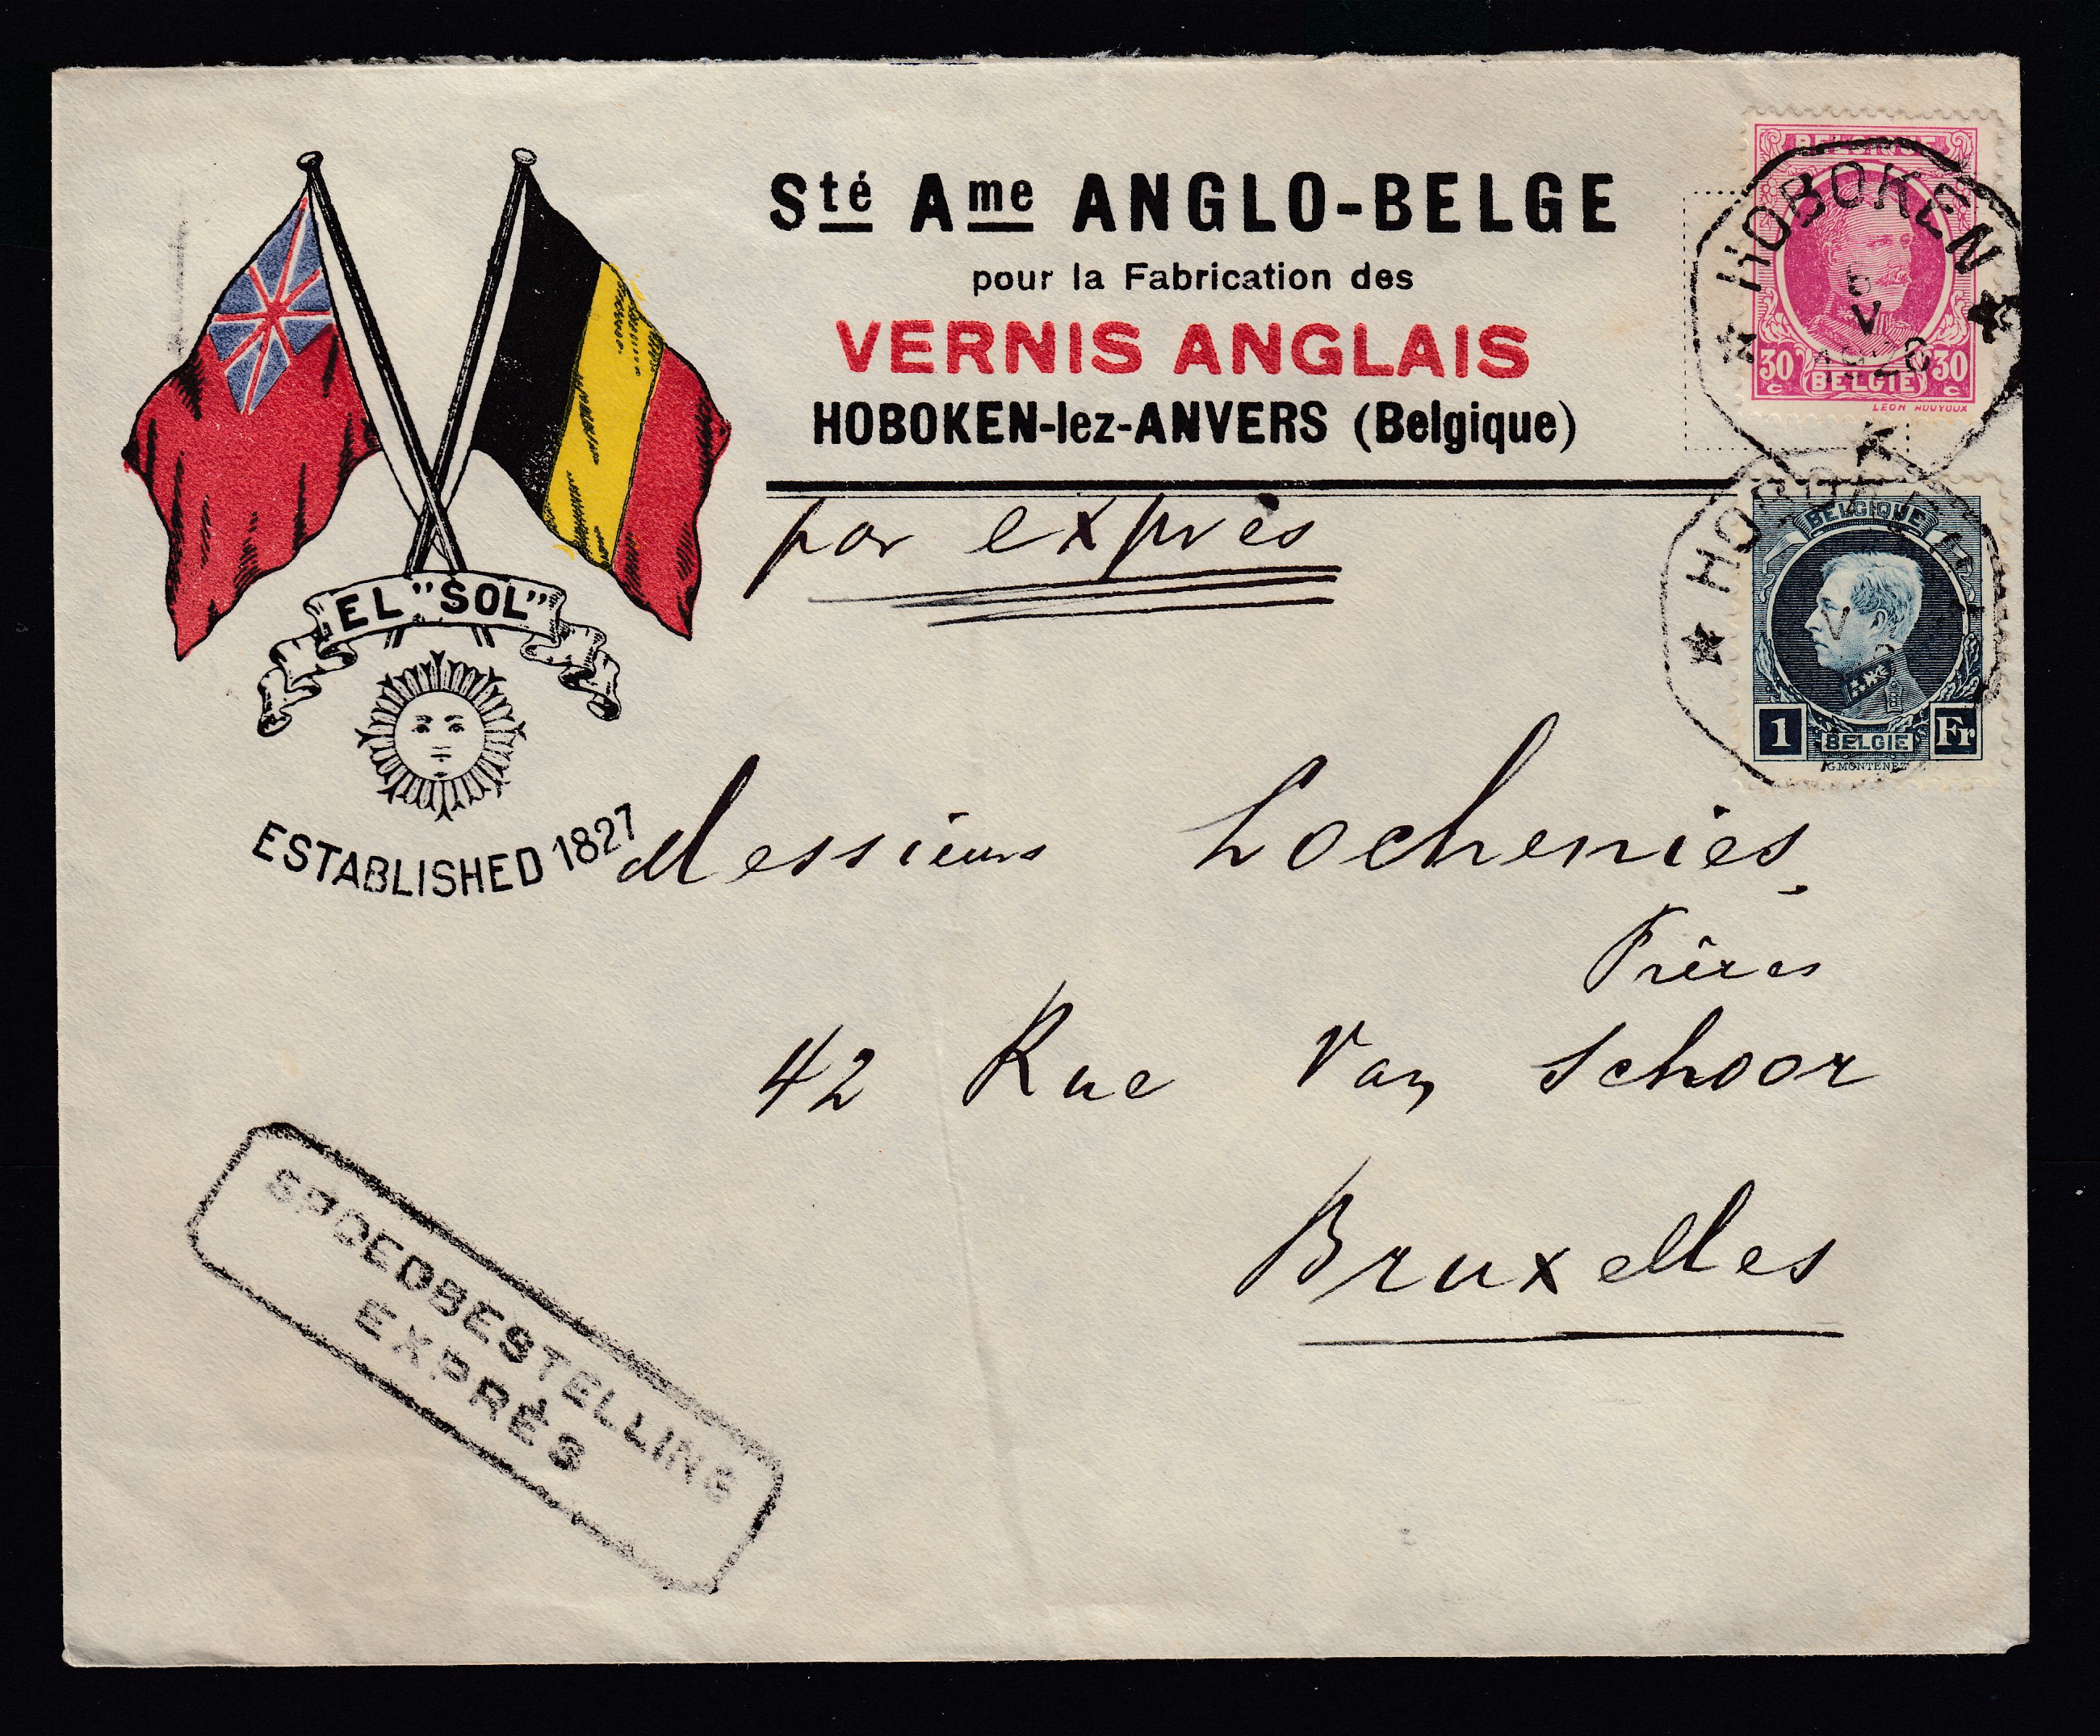 Sté Ame ANGLO-BELGE
pour la Fabrication des
VERNIS ANGLAIS
HOBOKEN-lez-ANVERS (Belgique)
par exprès
EL "SOL"
ESTABLISHED 1827
BELGIQUE
30 c BELGIË 30 c
LEON HOUYOUX
HOBOKEN
V
BELGIQUE
1 BELGIË Fr
G. MONTENEZ
HOBOKEN
V
Messieurs Lochenies,
Frères
42 Rue Van Schoor
Bruxelles
SPOEDBESTELLING
EXPRÈS